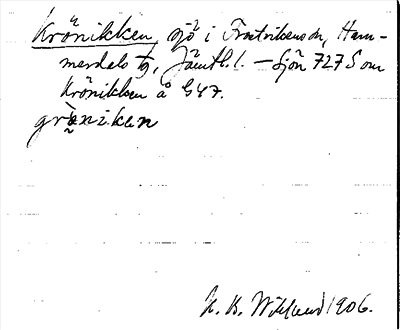 Krönikken, sjö i Fredrikssön, Ham-
merdals tg, Jämtl. l. – Sjön 727 S om
Krönikken å G47.
gröniken
K. B. Wiklund 1906.